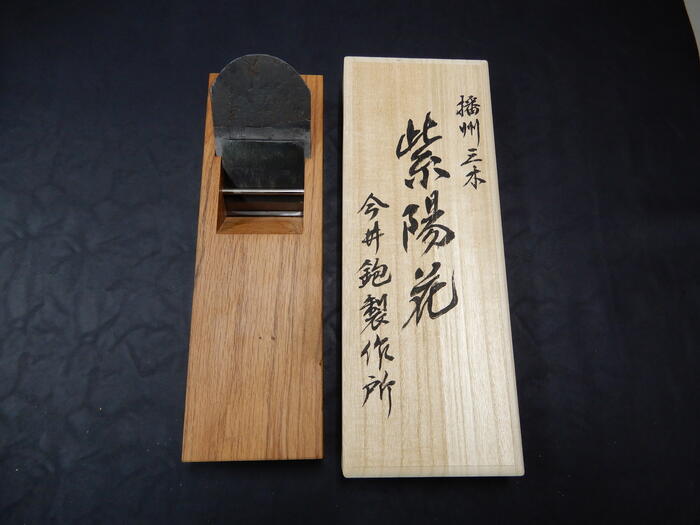 播州三木
紫陽花
今井鉋製作所